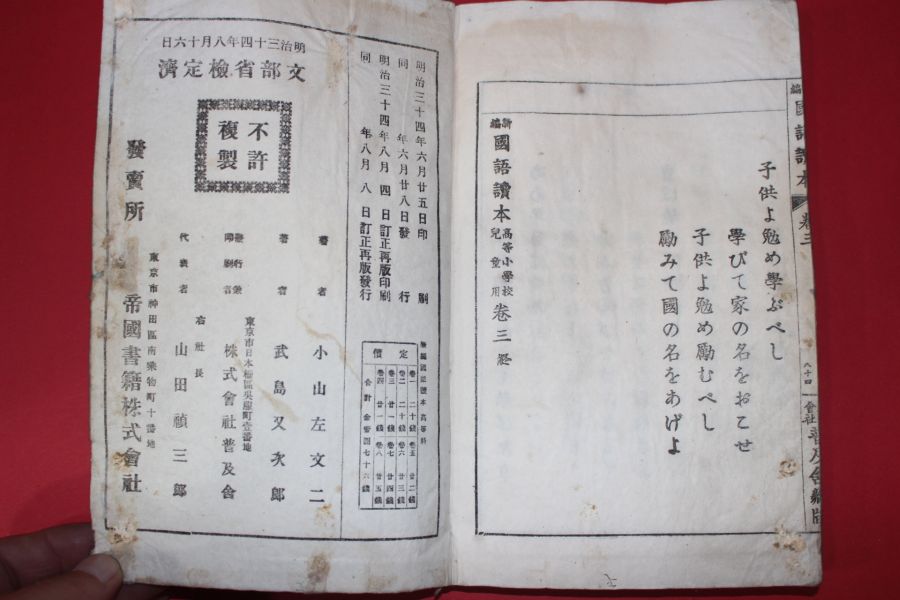 編 國語讀本 卷三
八十四 會社 普及舍藏版
子供よ勉め學ぶべし
學びて家の名をおこせ
子供よ勉め勵むべし
勵みて國の名をあげよ
新編 國語讀本 高等小學校兒童用 卷三 終
明治三十四年八月十六日
文部省檢定濟
不許複製
明治三十四年六月廿五日印刷
同 年六月廿八日發行
明治三十四年八月四日訂正再版印刷
同 年八月八日訂正再版發行
定價
卷一 二十錢 卷五 廿二錢
卷二 二十錢 卷六 廿三錢
卷三 廿一錢 卷七 廿四錢
卷四 廿一錢 卷八 廿五錢
合計 金壹圓七十六錢
著者 小山左文二
著者 武島又次郎
東京市日本橋區吳服町壹番地
發行兼印刷者 株式會社普及舍
右社長
代表者 山田禎三郎
東京市神田區南乘物町十番地
發賣所 帝國書籍株式會社